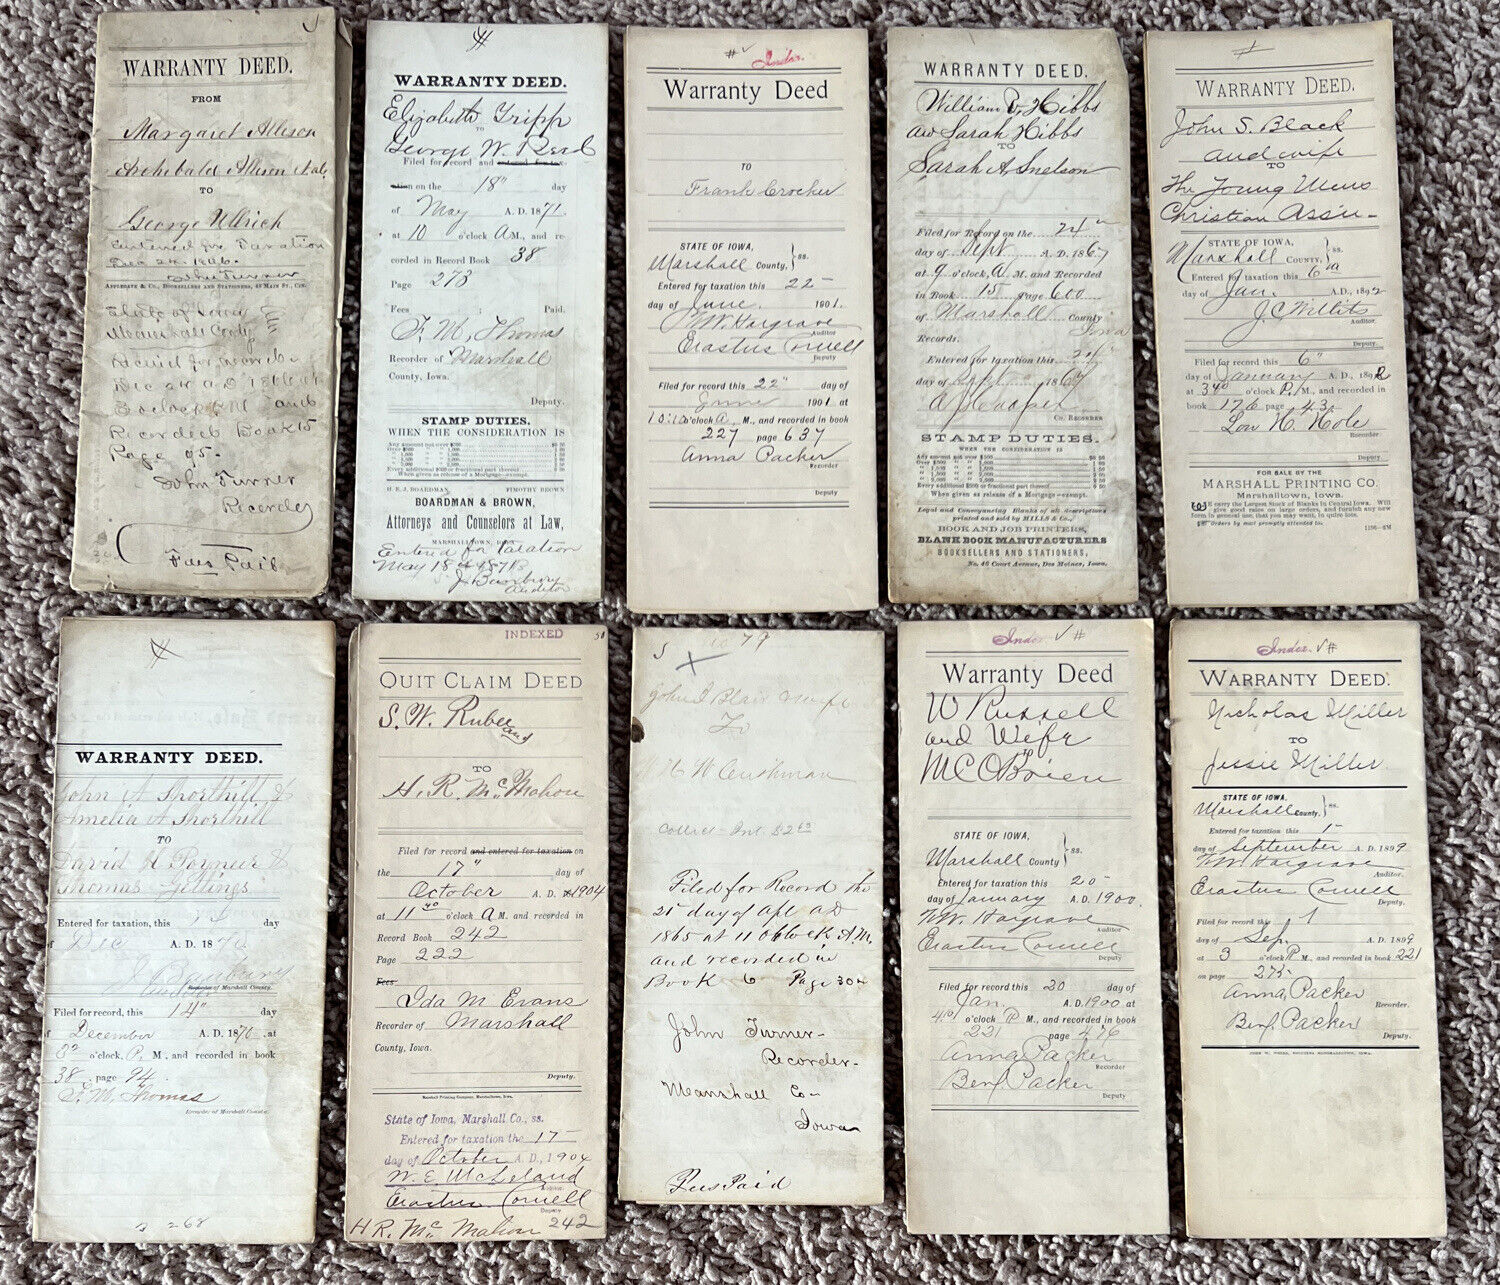 WARRANTY DEED.
FROM
Margaret Allison
Archebald Allison
TO
George Ullrich
Entered for Taxation
Dec 24 1866.
John Turner
APPLEGATE & CO., BOOKSELLERS AND STATIONERS, 43 MAIN ST., CIN.
State of Iowa
Marshall Conty
Recorded Book 15
Page 95-
John Turner
Recorder
Fees Paid
WARRANTY DEED.
Elizabeth Tripp
TO
George W. Read
Filed for record and entered for tax-
ation on the 18" day
of May A. D. 1871.
at 10 o'clock A M., and re-
corded in Record Book 38
Page 273
Fees ; Paid.
F. M. Thomas
Recorder of Marshall
County, Iowa.
Deputy.
STAMP DUTIES.
WHEN THE CONSIDERATION IS
Any amount not over $500
Every additional $500 or fractional part thereof
When given as release of a Mortgage-exempt.
H. E. J. BOARDMAN, TIMOTHY BROWN
BOARDMAN & BROWN,
Attorneys and Counselors at Law,
MARSHALLTOWN, IOWA
Entered for Taxation
May 18th 1871
Auditor
# ✓ Index.
Warranty Deed
TO
Frank Crocker
STATE OF IOWA,
Marshall County, } ss.
Entered for taxation this 22-
day of June 1901.
Hargrave
Auditor
Erastus Cornell
Deputy
Filed for record this 22" day of
June 1901 at
o'clock A, M., and recorded in book
227 page 637
Anna Packer
Recorder
Deputy
WARRANTY DEED.
William Hibbs
Sarah Hibbs
TO
Sarah A, Snelson
Filed for Record on the 24"
day of Sept A. D. 1867
at 9 o'clock, A M. and Recorded
in Book 15 Page 600
of Marshall County
Iowa
Records.
Entered for taxation this 24"
day of Sept 1867
CO. RECORDER
STAMP DUTIES.
WHEN THE CONSIDERATION IS
Any amount not over $500
Every additional $500 or fractional part thereof
When given as release of a Mortgage-exempt.
Legal and Conveyancing Blanks of all descriptions
printed and sold by MILLS & Co.,
BOOK AND JOB PRINTERS,
BLANK BOOK MANUFACTURERS
BOOKSELLERS AND STATIONERS,
No. 46 Court Avenue, Des Moines, Iowa.
WARRANTY DEED.
John S. Black
and wife
TO
The Young Mens
Christian Ass'n-
STATE OF IOWA,
Marshall COUNTY, } ss.
Entered for taxation this 6th
day of Jan. A.D., 1892
J C Willits
Auditor.
Deputy.
Filed for record this 6"
day of January A. D., 1892
at 3 40 o'clock P. M., and recorded in
book 176 page 43.
Recorder
Deputy
FOR SALE BY THE
MARSHALL PRINTING CO.
Marshalltown, Iowa.
We carry the Largest Stock of Blanks in Central Iowa. Will
give good rates on large orders, and furnish any new
form in general use, that you may want, in quire lots.
Orders by mail promptly attended to. 1156-5M
WARRANTY DEED.
John A Shorthill &
Amelia A Shorthill
TO
Thomas Gittings
Entered for taxation, this day
of Dec A. D. 1870.
J Banbury
Recorder of Marshall County.
Filed for record, this 14" day
of December A. D. 1870. at
o'clock, P. M., and recorded in book
38 page 94.
F. M. Thomas
Recorder of Marshall County.
INDEXED
QUIT CLAIM DEED
S. W. Rubee and
TO
H. R. McMahon
Filed for record and entered for taxation on
the 17" day of
October A. D. 1904
at 11 40 o'clock A M. and recorded in
Record Book 242
Page 222
Fees
Ida M Evans
Recorder of Marshall
County, Iowa.
Deputy.
Marshall Printing Company, Marshalltown, Iowa.
State of Iowa, Marshall Co., ss.
Entered for taxation the 17-
day of October A. D., 1904
W. E. McLeland
Erastus Cornell
Deputy
H R. Mc Mahon 242
79
John I Blair
To
W Cushman
Filed for Record the
25 day of Apl AD
1865 at 11 Oclock A.M,
and recorded in
Book 6 Page 304
John Turner-
Recorder-
Marshall Co-
Iowa
Fees Paid
Index ✓ #
Warranty Deed
W Russell
and Wife
TO
M C OBrien
STATE OF IOWA,
Marshall County } ss.
Entered for taxation this 20-
day of January A.D. 1900.
Hargrave
Auditor
Erastus Cornell
Deputy
Filed for record this 20 day of
Jan. A.D. 1900 at
o'clock P M., and recorded in book
221 page 476
Anna Packer
Recorder
Benj Packer
Deputy
Index. ✓ #
WARRANTY DEED.
Nicholas Miller
TO
Jessie Miller.
STATE OF IOWA,
Marshall County, } ss.
Entered for taxation this 1-
day of September A. D. 1899
Hargrave
Auditor.
Erastus Cornell
Deputy.
Filed for record this 1
day of Sep. A. D. 1899
at 3 o'clock P M., and recorded in book 221
on page 275-
Anna Packer
Recorder.
Benj Packer
Deputy.